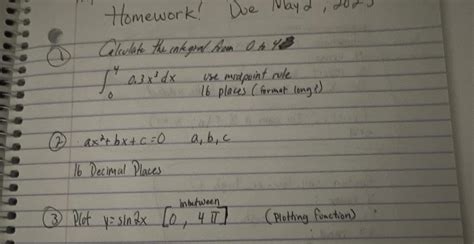 Homework! Due May 2, 2023
① Calculate the integral from 0 to 4
∫₀⁴ 0.3x² dx use midpoint rule
16 places (format long)
② ax²+bx+c=0 a, b, c
16 Decimal Places
inbetween
③ Plot y=sin2x [0, 4π] (Plotting function)